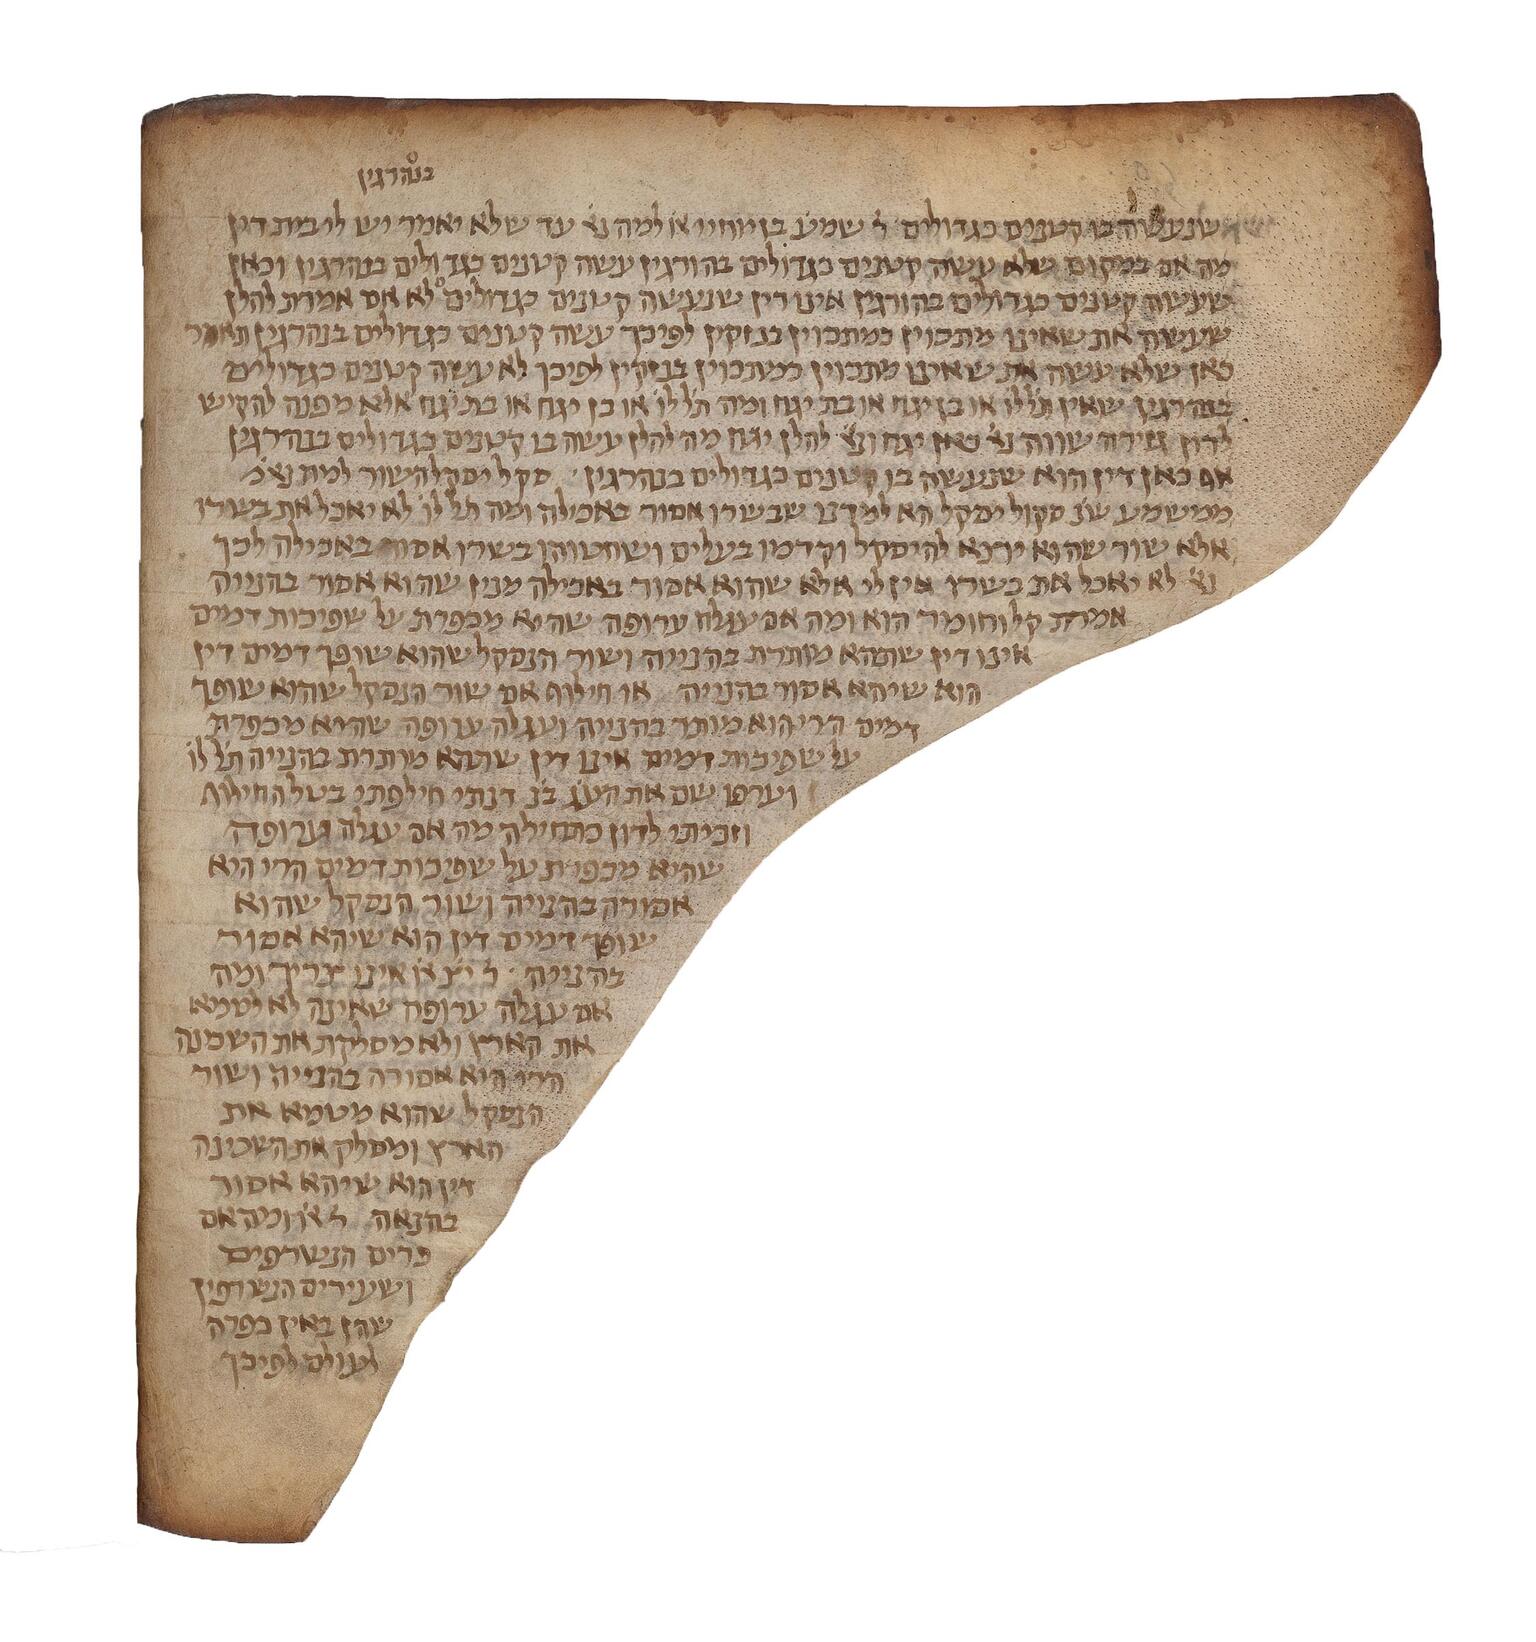 בנהרגין
שנעשה בו קטנים כגדולים ר' שמע' בן יוחיי או' למה נא' עד שלא יאמר יש לי בית דין
מה אם במקום שלא עשה קטנים כגדולים בהורגין עשה קטנים כגדולים בנהרגין וכאן
שעשה קטנים כגדולים בהורגין אינו דין שנעשה קטנים כגדולים לא אם אמרת להלן
שעשה את שאינו מתכוין כמתכוין בנזקין לפיכך עשה קטנים כגדולים בנהרגין תאמר
כאן שלא עשה את שאינו מתכוין כמתכוין בנזקין לפיכך לא עשה קטנים כגדולים
בנהרגין שאין ת'ל לו' או בן יגח או בת יגח ומה ת'ל לו' או בן יגח או בת יגח אלא מפנה להקיש
לדון גזירה שווה נא' כאן יגח ונא' להלן יגח מה להלן עשה בו קטנים כגדולים בנהרגין
אף כאן דין הוא שנעשה בו קטנים כגדולים בנהרגין סקל יסקל השור למה נא'
ממישמע שנ' סקול יסקל הא למדנו שבשרו אסור באכילה ומה ת'ל לו' לא יאכל את בשרו
אלא שור שהוא יוצא להיסקל וקדמו בעלים ושחטוהו בשרו אסור באכילה לכך
נא' לא יאכל את בשרו אין לי אלא שהוא אסור באכילה מנין שהוא אסור בהנייה
אמרת קל וחומר הוא ומה אם עגלה ערופה שהיא מכפרת על שפיכות דמים
אינו דין שתהא מותרת בהנייה ושור הנסקל שהוא שופך דמים דין
הוא שיהא אסור בהנייה או חילוף אם שור הנסקל שהוא שופך
דמים הרי הוא מותר בהנייה ועגלה ערופה שהיא מכפרת
על שפיכות דמים אינו דין שתהא מותרת בהנייה ת'ל לו'
וערפו שם את העג' בנ' דנתי חילפתי בטל החילוף
וזכיתי לדון כתחילה מה אם עגלה הערופה
שהיא מכפרת על שפיכות דמים הרי היא
אסורה בהנייה ושור הנסקל שהוא
שופך דמים דין הוא שיהא אסור
בהנייה ר' יצ' או' אינו צריך ומה
אם עגלה ערופה שאינה לא לטמא
את הארץ ולא מסלקת את השכינה
הרי היא אסורה בהנייה ושור
הנסקל שהוא מטמא את
הארץ ומסלק את השכינה
דין הוא שיהא אסור
בהנאה ר' או' ומה אם
פרים הנשרפים
ושעירים הנשרפין
שהן באין כפרה
לעולם לפיכך